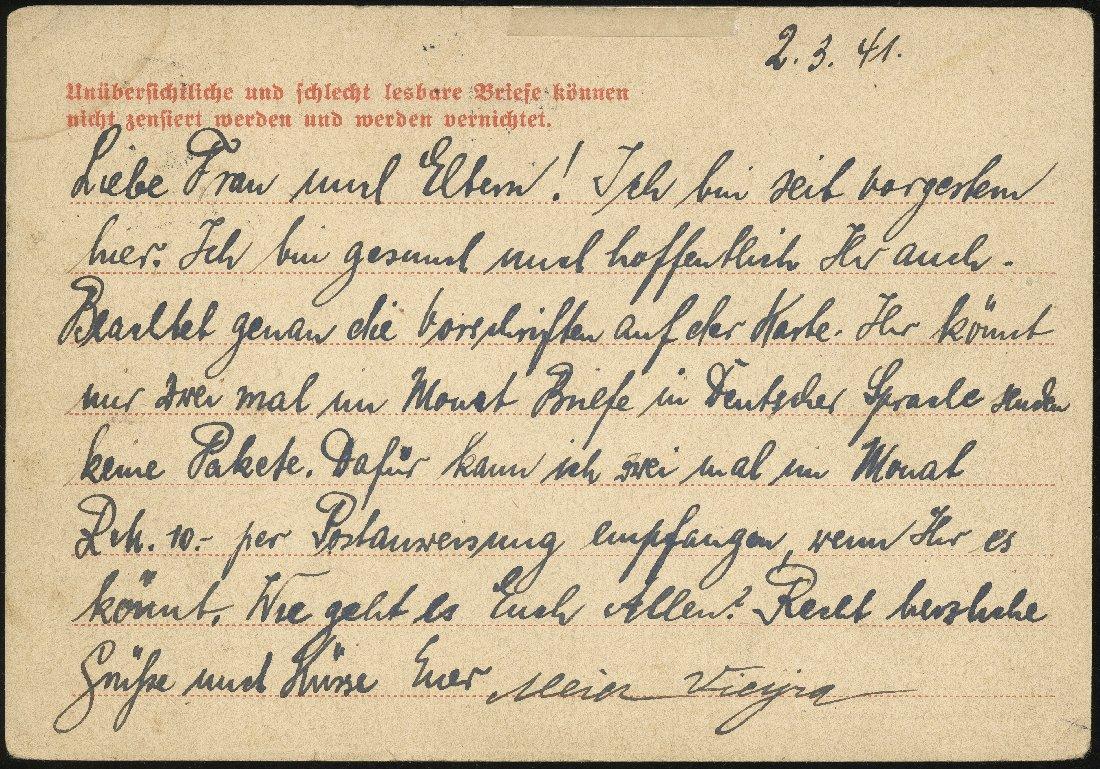 2.3.41.
Unübersichtliche und schlecht lesbare Briefe können
nicht zensiert werden und werden vernichtet.
Liebe Frau und Eltern! Ich bin seit vorgestern
hier. Ich bin gesund und hoffentlich Ihr auch.
Beachtet genau die Vorschriften auf der Karte. Ihr könnt
nur zwei mal im Monat Briefe in Deutscher Sprache senden
keine Pakete. Dafür kann ich zwei mal im Monat
Rch. 10.- per Postanweisung empfangen, wenn Ihr es
könnt. Wie geht es Euch Allen? Recht herzliche
Grüße und Küsse Euer Meier Vieyra